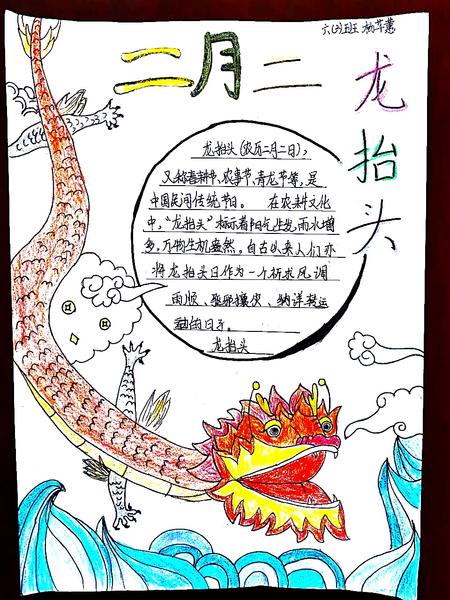 六(3)班 杨芊蕙
二月二
龙抬头
龙抬头(农历二月二日),
又称春耕节、农事节、青龙节等,是
中国民间传统节日。 在农耕文化
中,“龙抬头”标示着阳气生发,雨水增
多,万物生机盎然。自古以来人们亦
将龙抬头日作为一个祈求风调
雨顺、驱邪攘灾、纳祥转运
的日子。
龙抬头